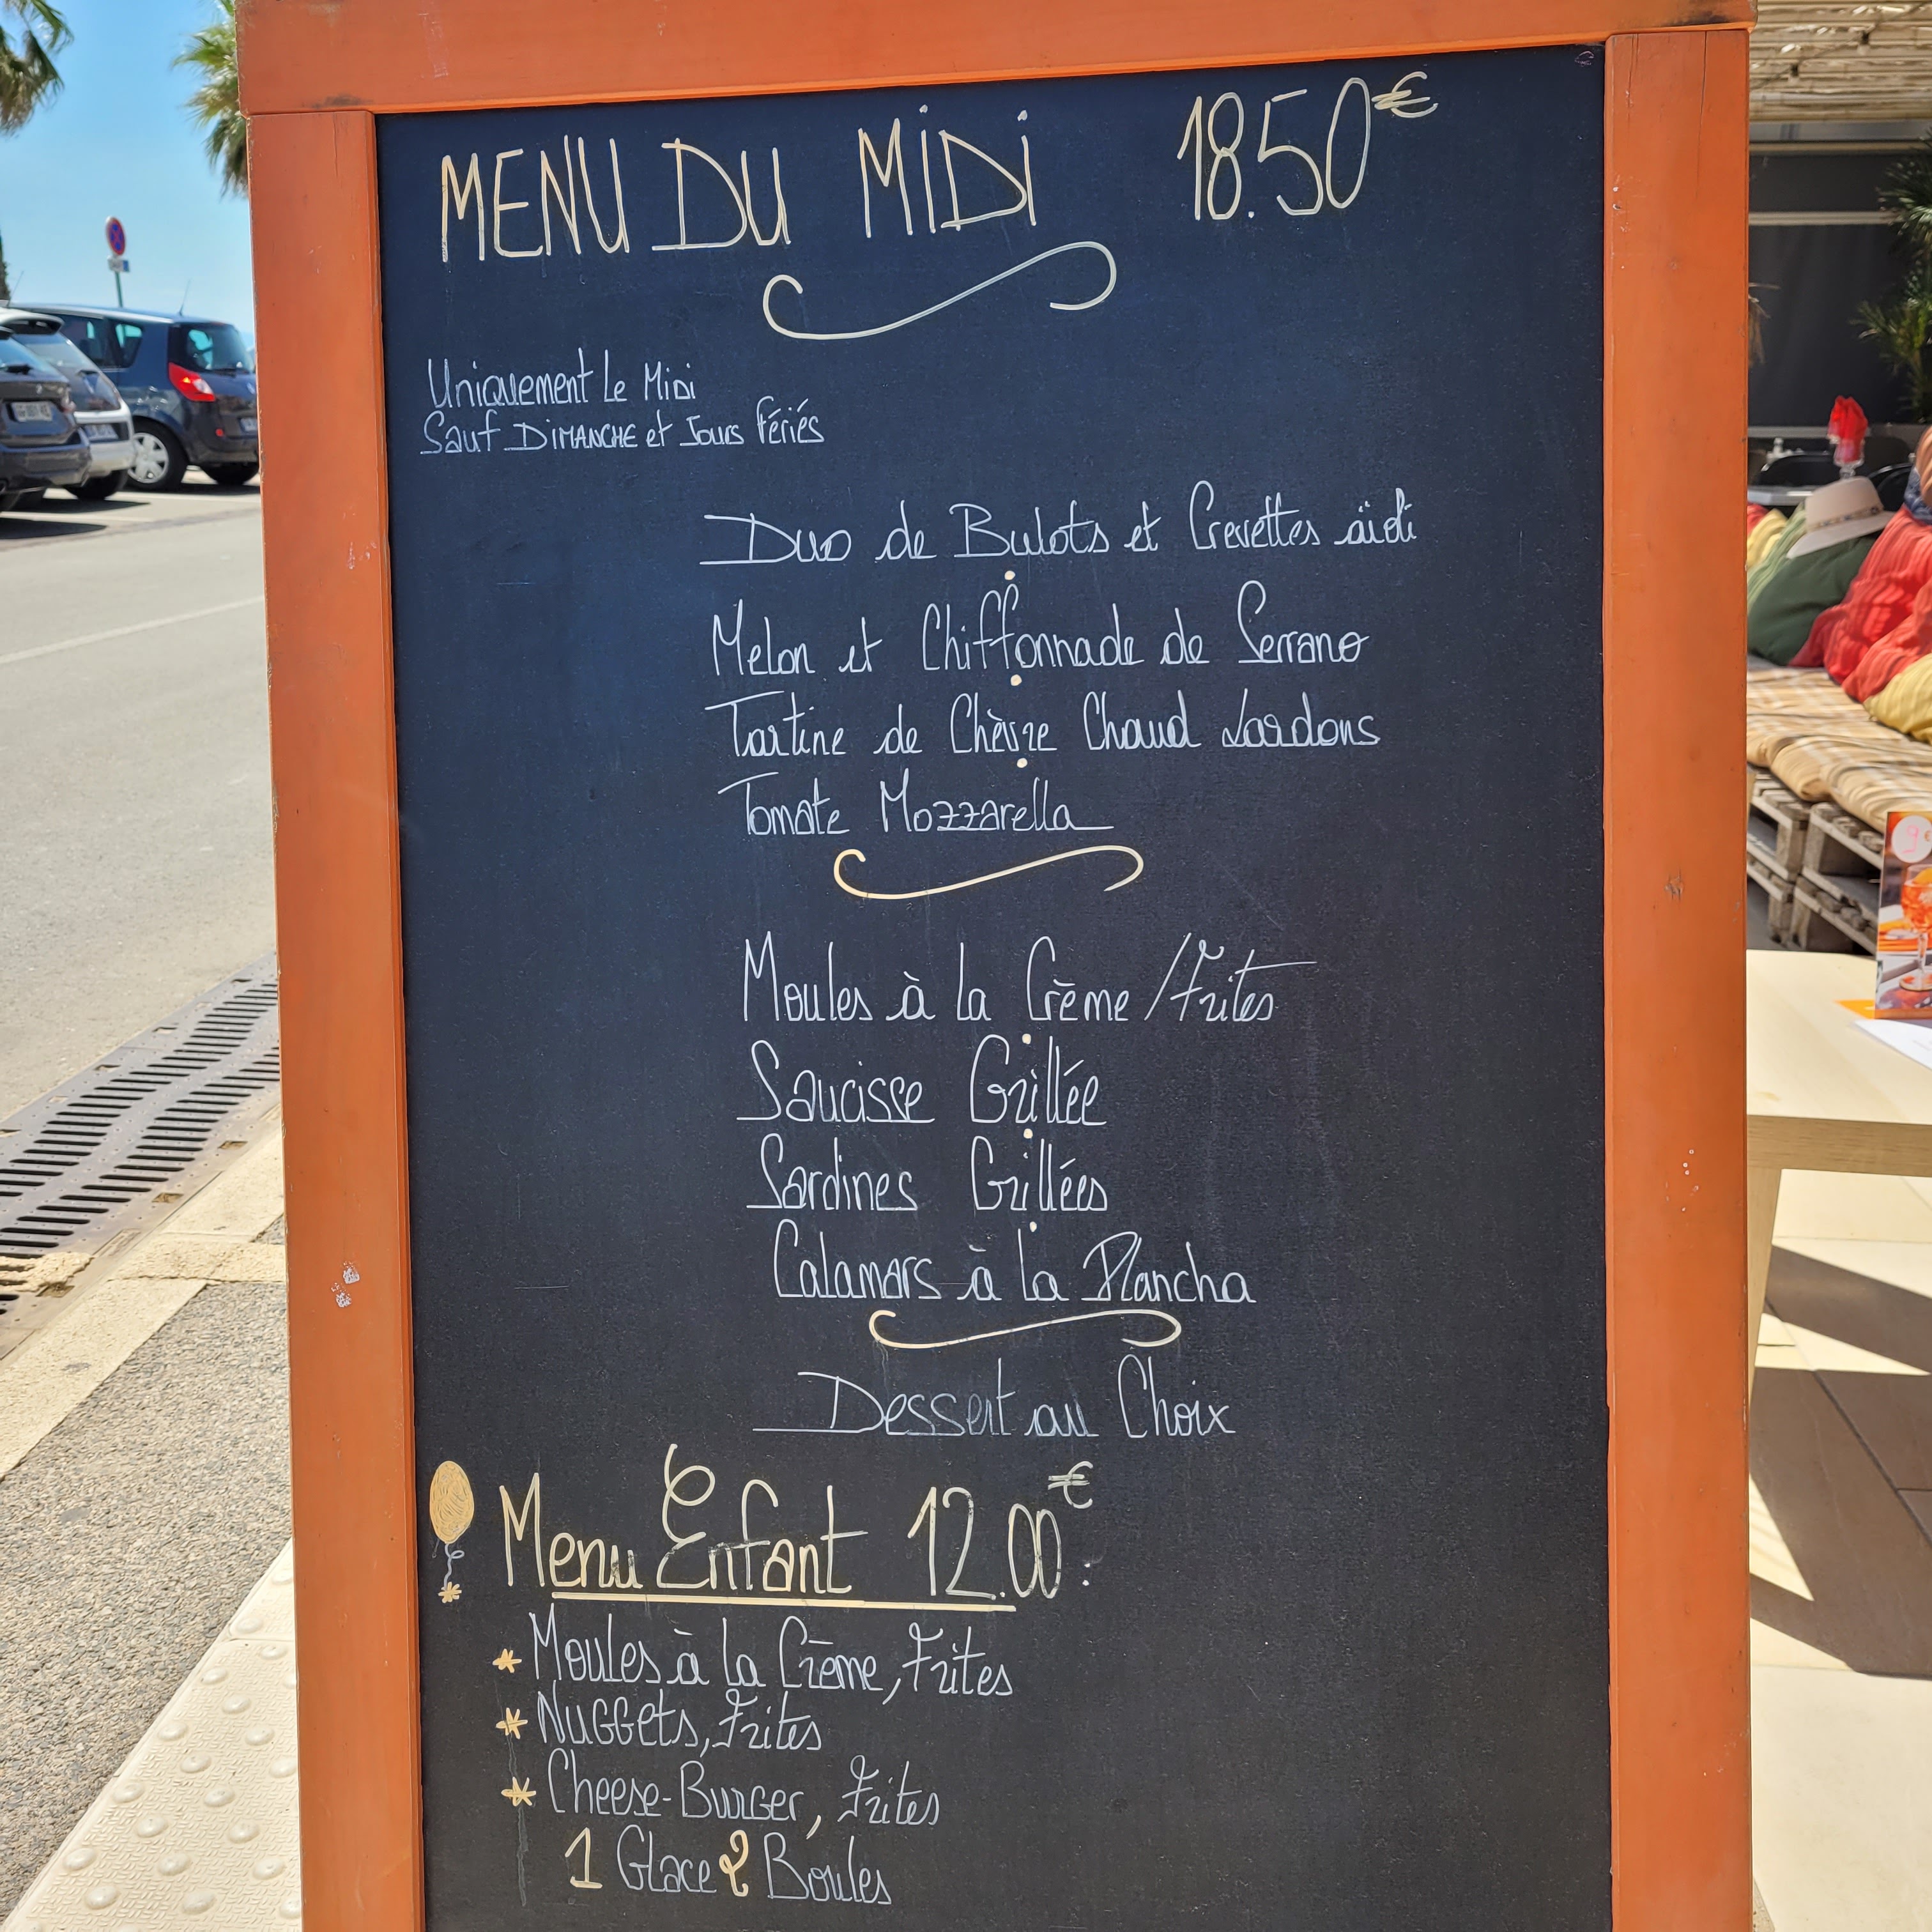 MENU DU MiDi 18.50€
Uniquement Le Midi
Sauf DiMANCHE et Jours Fériés
Duo de Bulots et Crevettes aïoli
Melon et Chiffonnade de Serrano
Tartine de Chèvre Chaud Lardons
Tomate Mozzarella
Moules à la Crème / Frites
Saucisse Grillée
Sardines Grillées
Calamars à la Plancha
Dessert au Choix
Menu Enfant 12.00€ :
* Moules à la Crème, Frites
* Nuggets, Frites
* Cheese-Burger, Frites
1 Glace 2 Boules